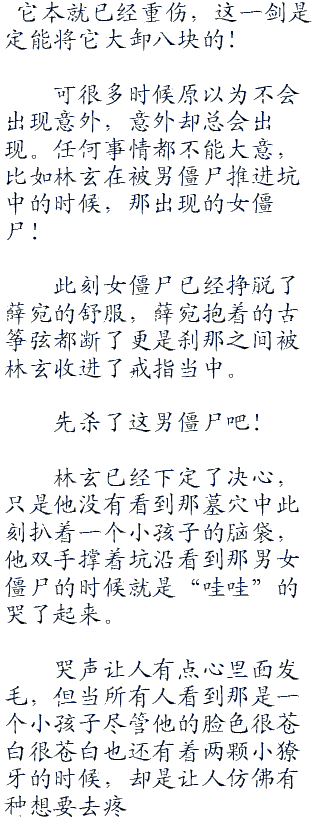 它本就已经重伤，这一剑是
定能将它大卸八块的！
可很多时候原以为不会
出现意外，意外却总会出
现。任何事情都不能大意，
比如林玄在被男僵尸推进坑
中的时候，那出现的女僵
尸！
此刻女僵尸已经挣脱了
薛宛的舒服，薛宛抱着的古
筝弦都断了更是刹那之间被
林玄收进了戒指当中。
先杀了这男僵尸吧！
林玄已经下定了决心，
只是他没有看到那墓穴中此
刻扒着一个小孩子的脑袋，
他双手撑着坑沿看到那男女
僵尸的时候就是“哇哇”的
哭了起来。
哭声让人有点心里面发
毛，但当所有人看到那是一
个小孩子尽管他的脸色很苍
白很苍白也还有着两颗小獠
牙的时候，却是让人仿佛有
种想要去疼